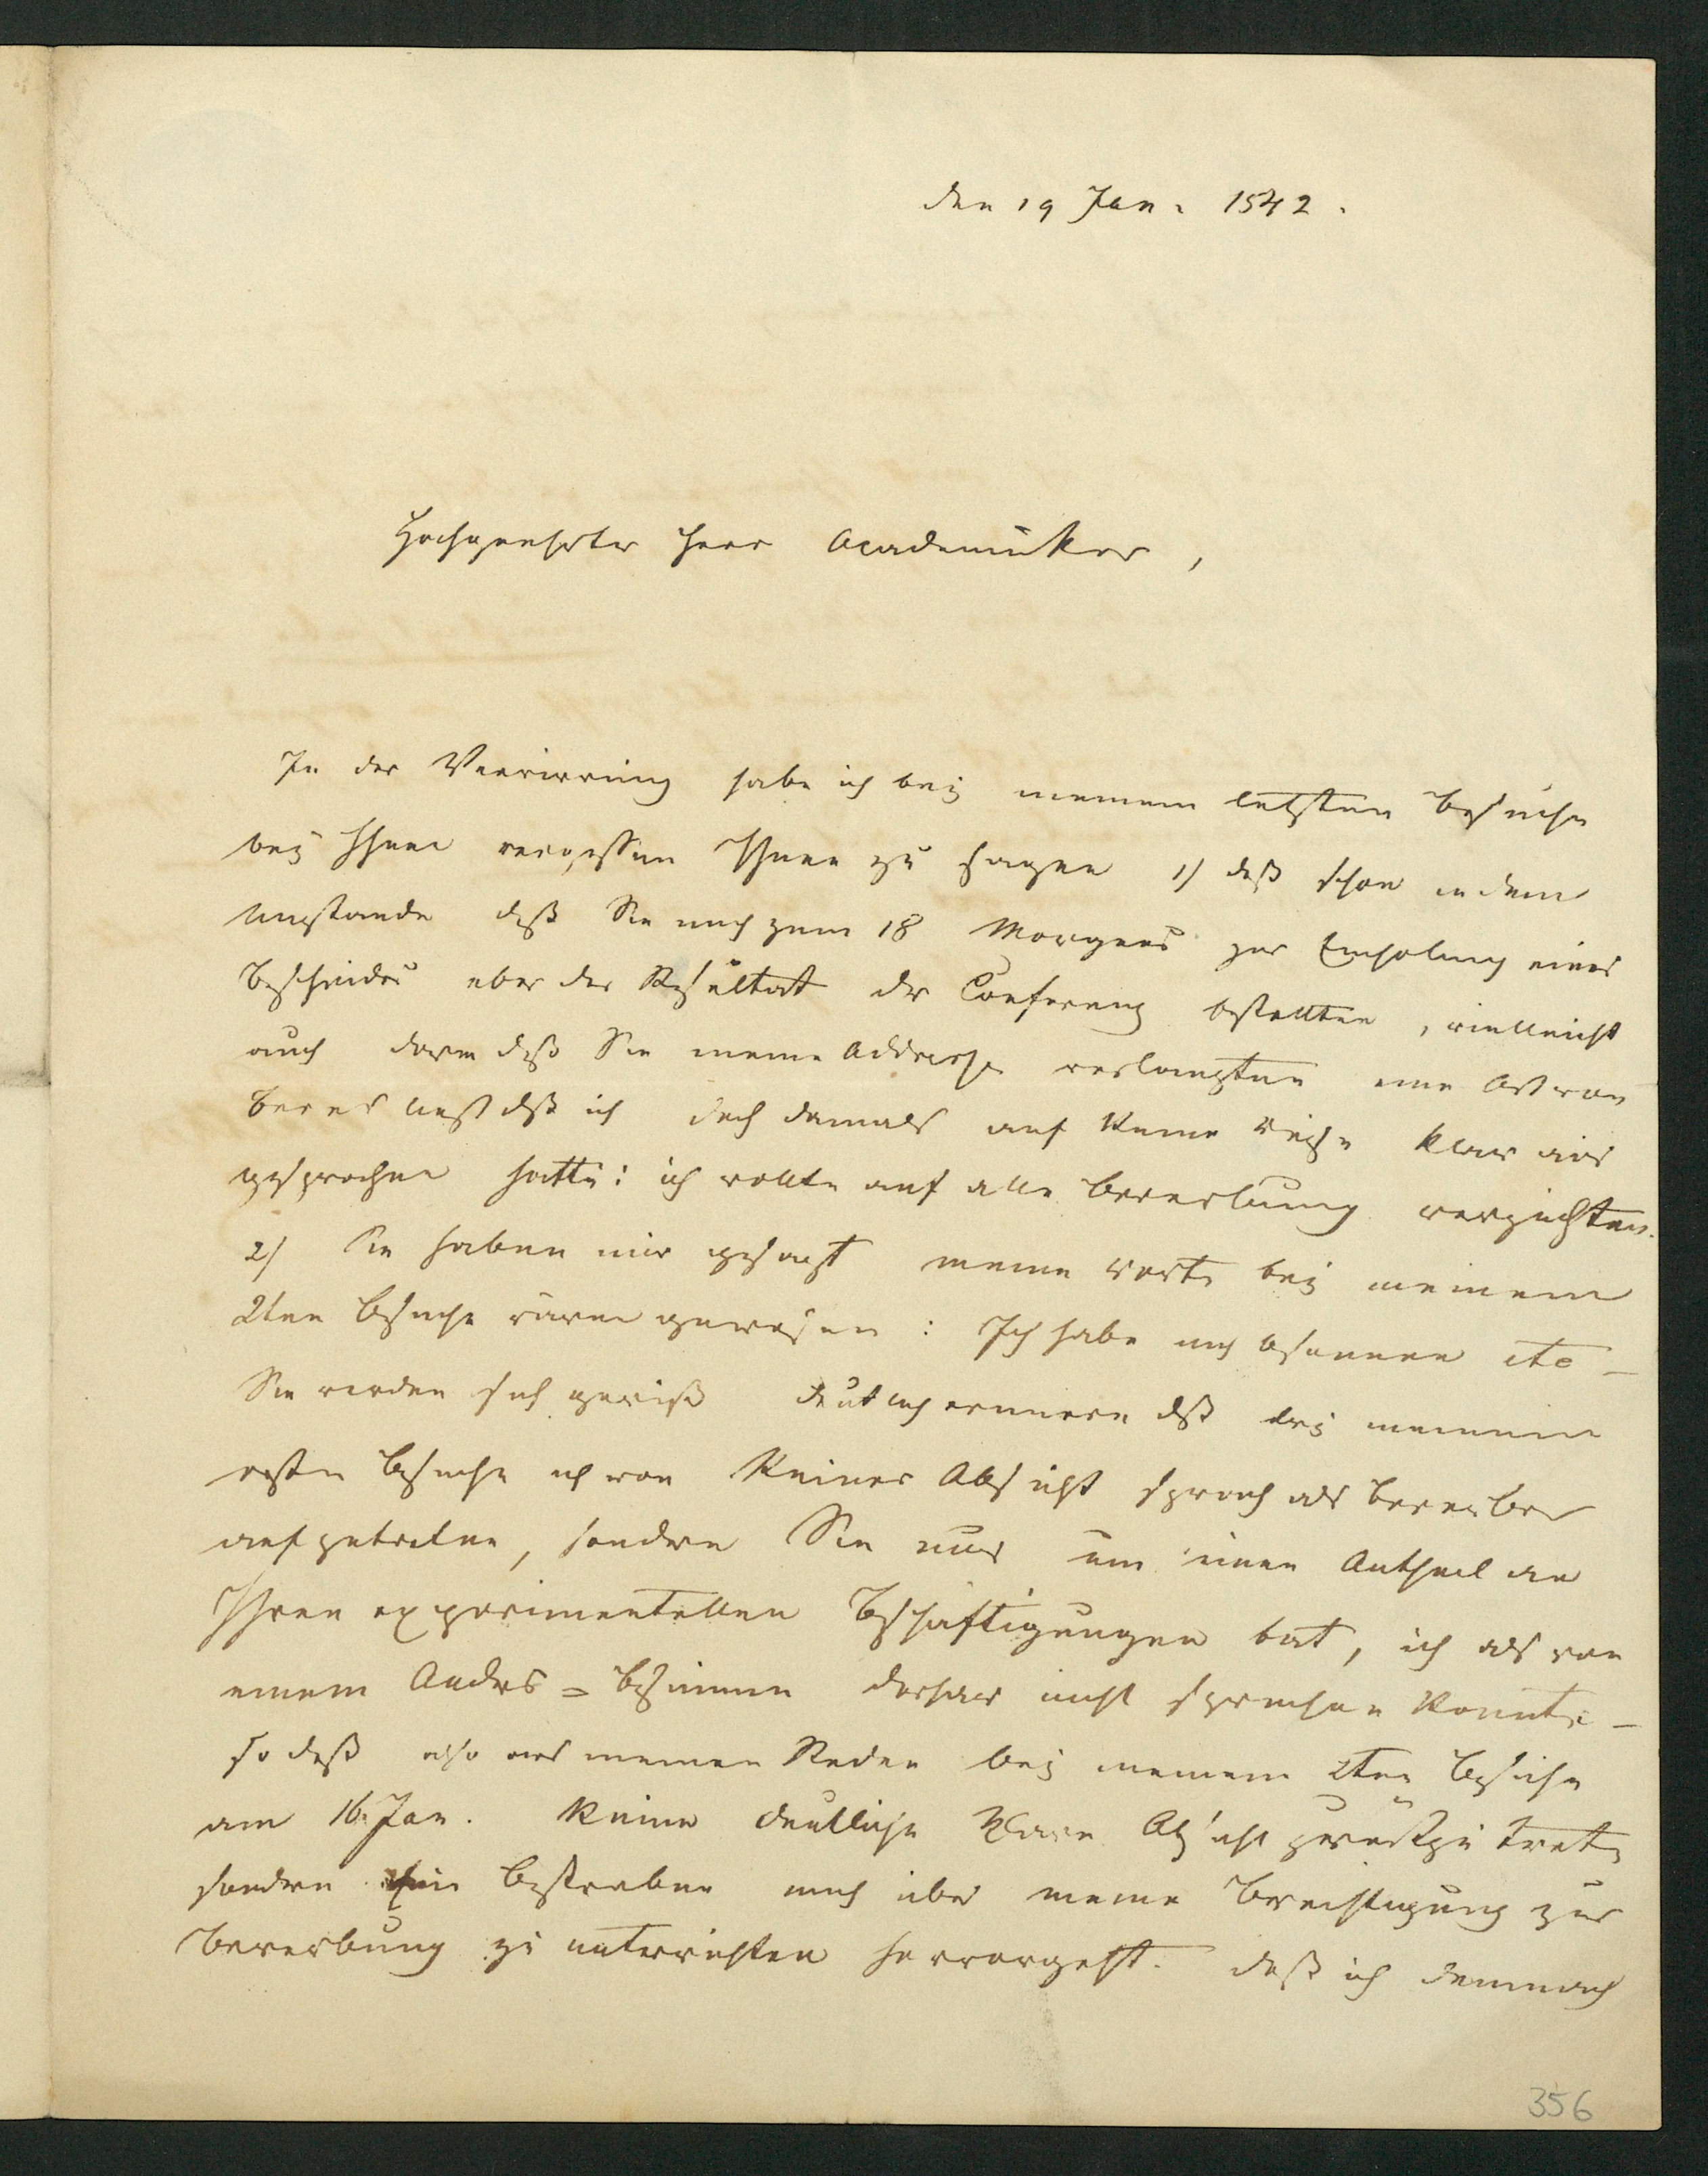 den 19 Jan. 1842.
Hochgeehrter Herr Academiker,
In der Verwirrung habe ich bei meinem letzten Besuche
bei Ihnen vergessen Ihnen zu sagen 1) daß schon in dem
Umstande daß Sie mich zum 18 Morgens zur Einholung eines
Bescheides über das Resultat der Conferenz bestellten, vielleicht
auch darin daß Sie meine Addresse verlangten eine Art von
Beweis liegt daß ich doch damals auf keine Weise klar aus
gesprochen hatte: ich wollte auf alle Bewerbung verzichten.
2) Sie haben mir gesagt meine Worte bei meinem
2ten Besuche wären gewesen: Ich habe mich besonnen etc –
Sie werden sich gewiß deutlich erinnern daß bei meinem
ersten Besuche ich von keiner Absicht sprach als Bewerber
aufzutreten, sondern Sie nur um einen Antheil an
Ihren experimentellen Beschäftigungen bat, ich also von
einem Anders=besinnen daher nicht sprechen konnte –
so daß also aus meinen Reden bei meinem 2ten Besuche
am 16. Jan. keine deutliche klare Absicht zurückzutreten
sondern ein Bestreben mich über meine Berechtigung zur
Bewerbung zu unterrichten hervorgeht. Daß ich demnach
356